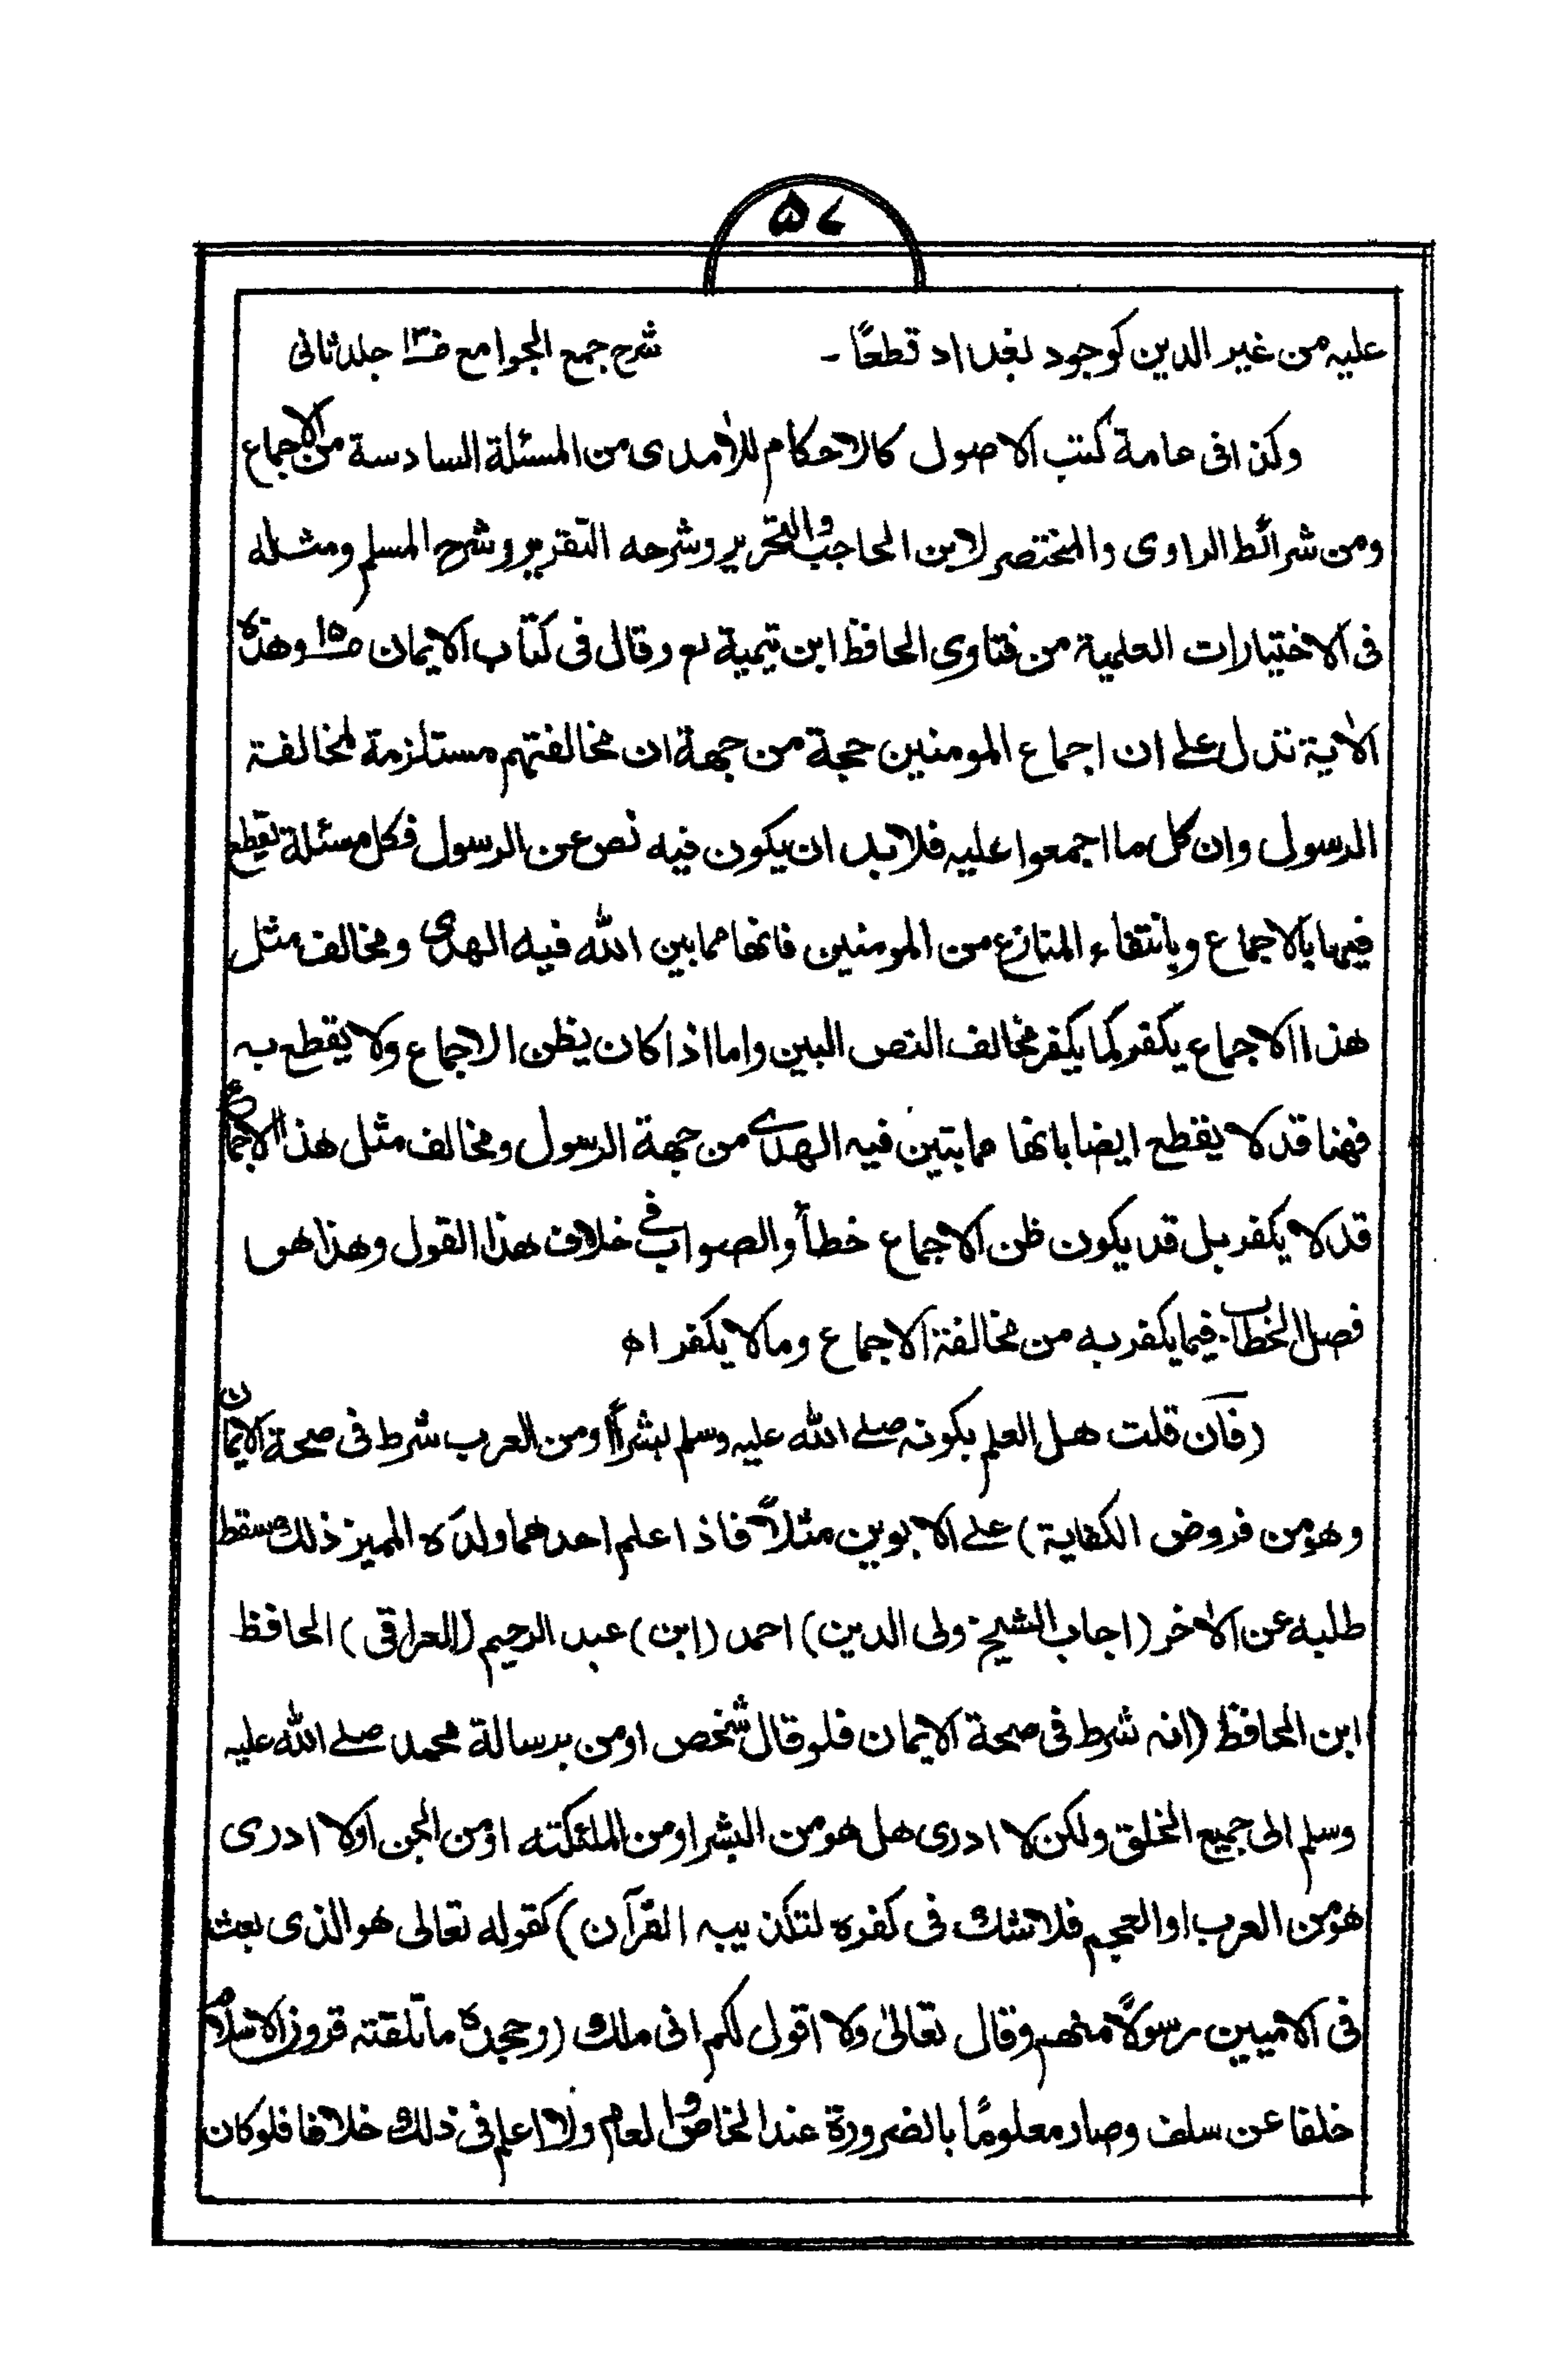 ۵۷
علیه من غیر الدین کوجود بغداد قطعًا۔ شرح جمع الجوامع ص۱۳ جلد ثانی
وکذا فی عامة کتب الاصول کالاحکام للاٰمدی من المسئلة السادسة من الاجماع
ومن شرائط الراوی والمختصر لابن الحاجب والتحریر وشرحه التقریر وشرح المسلم ومثله
فی الاختیارات العلمیة من فتاوی الحافظ ابن تیمیة وقال فی کتاب الایمان ص۱۵ وهذه
الاٰیة تدل علے ان اجماع المومنین حجة من جهة ان مخالفتهم مستلزمة لمخالفة
الرسول وان کل ما اجمعوا علیه فلا بد ان یکون فیه نص عن الرسول فکل مسئلة یقطع
فیها بالاجماع وبانتفاء المنازع من المومنین فانها مما بین الله فیه الهدی ومخالف مثل
هذا الاجماع یکفر کما یکفر مخالف النص البین واما اذا کان یظن الاجماع ولا یقطع به
فهنا قد لا یقطع ایضا بانها مما یتبین فیه الهدے من جهة الرسول ومخالف مثل هذا الاجماع
قد لا یکفر بل قد یکون ظن الاجماع خطأ والصواب فی خلاف هذا القول وهذا هو
فصل الخطاب فیما یکفر به من مخالفة الاجماع وما لا یکفر اھ
(فان قلت هل العلم بکونه صلے الله علیه وسلم بشرًا اومن العرب شرط فی صحة الایمان
وهو من فروض الکفایة) علے الابوین مثلًا فاذا علم احدهما ولدَه الممیز ذلك سقط
طلبه عن الاٰخر (اجاب الشیخ ولی الدین) احمد (ابن) عبد الرحیم (العراقی) الحافظ
ابن الحافظ (انه شرط فی صحة الایمان فلو قال شخص اومن برسالة محمد صلے الله علیه
وسلم الی جمیع الخلق ولکن لا ادری هل هو من البشر اومن الملئکته اومن الجن اولا ادری
هو من العرب او العجم فلا شك فی کفره لتکذیبه القراٰن) کقوله تعالی هو الذی بعث
فی الامیین رسولًا منهم وقال تعالیٰ ولا اقول لکم انی ملك (وجحده ما تلقته قرون الاسلام
خلفا عن سلف وصار معلومًا بالضرورة عند الخاص والعام ولا اعلم فی ذلك خلافا فلو کان